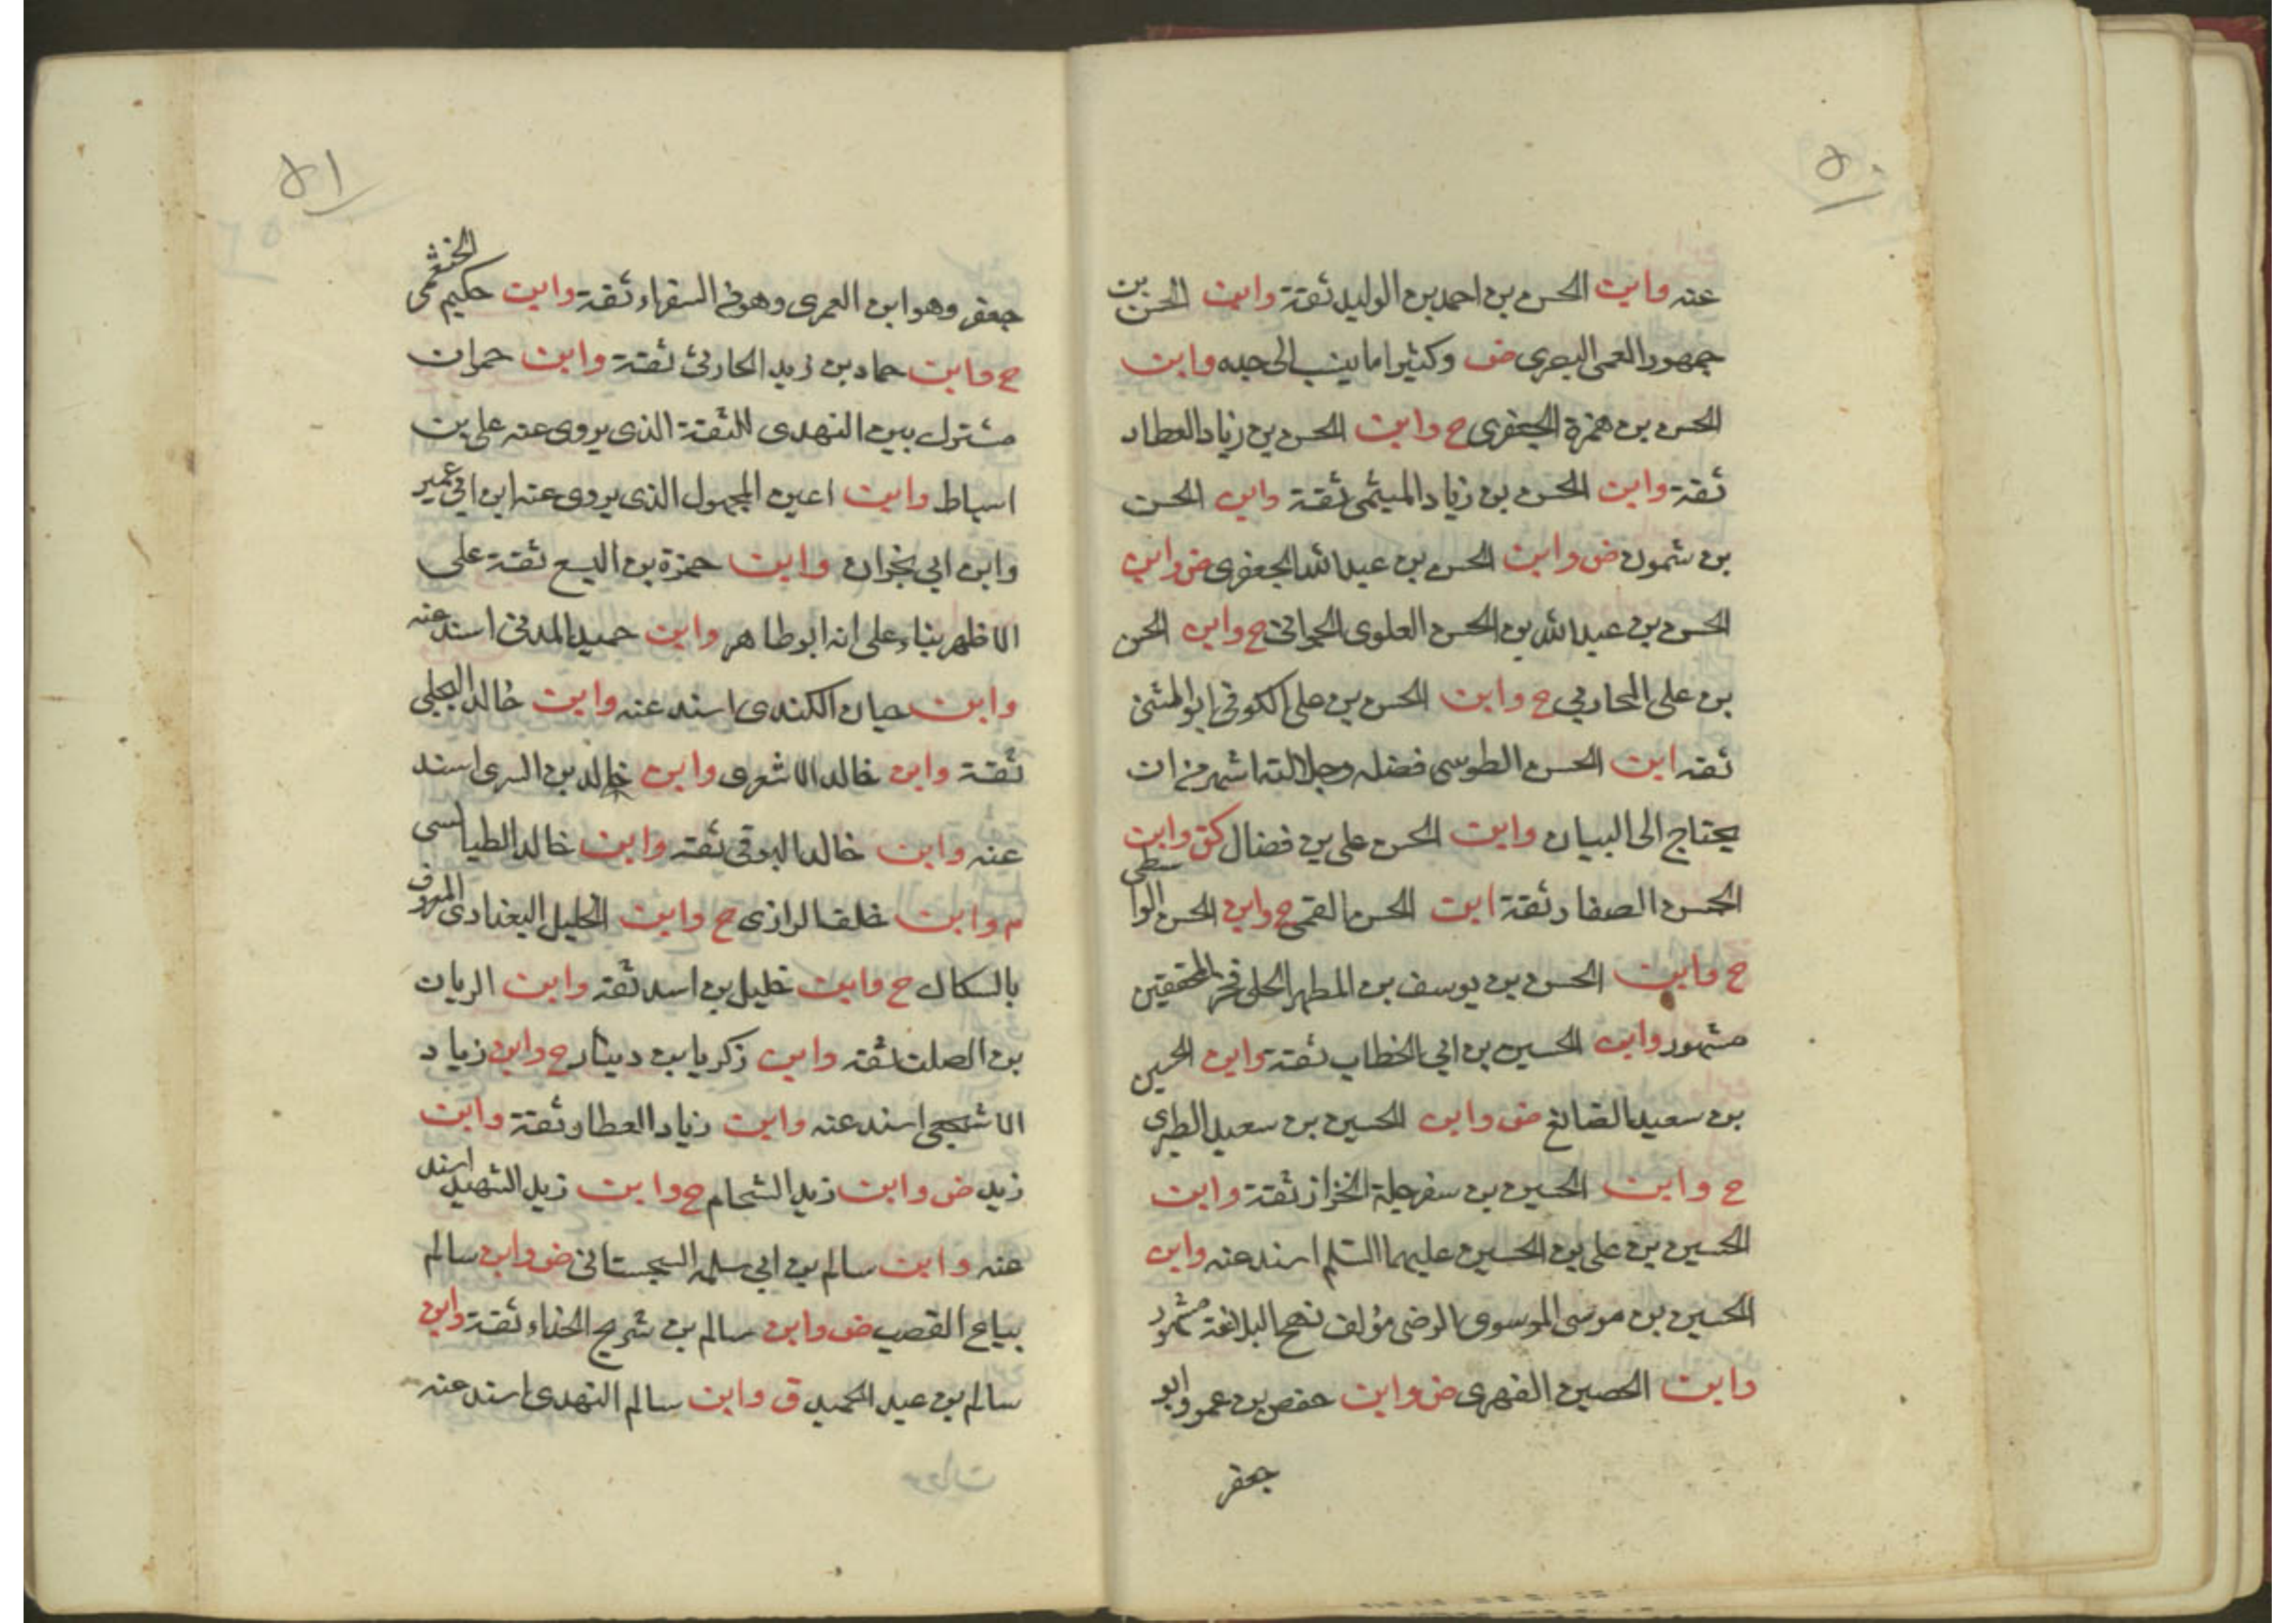 ٥٠
عنه وابن الحسن بن احمد بن الوليد ثقة وابن الحسن بن
جمهور العمى البصرى ض وكثيرا ما ينسب الى جده وابن
الحسن بن حمزة الجعفرى ح وابن الحسن بن زياد العطار
ثقة وابن الحسن بن زياد الميثمى ثقة وابن الحسن
بن شمون ض وابن الحسن بن عبد الله الجعفرى ض وابن
الحسن بن عبد الله بن الحسن العلوى الجوانى ح وابن الحسن
بن على المحاربي ح وابن الحسن بن على الكوفى ابو المثنى
ثقه ابن الحسن الطوسى فضله وجلالته اشهر من ان
يحتاج الى البيان وابن الحسن على بن فضال كق وابن
الحسن الصفار ثقة ابن الحسن القمى ح وابن الحسن الواسطى
ح وابن الحسن بن يوسف بن المطهر الحلى فخر المحققين
مشهور وابن الحسين بن ابي الخطاب ثقة وابن الحسين
بن سعيد الصائغ ض وابن الحسين بن سعيد الطبرى
ح وابن الحسين بن سفرجلة الخزاز ثقة وابن
الحسين بن على بن الحسين عليهما السلم اسند عنه وابن
الحسين بن موسى الموسوى الرضى مؤلف نهج البلاغة مشهور
وابن الحصين الفهرى ض وابن حفص بن عمرو ابو
جعفر
٥١
جعفر وهو ابن العمرى وهو من السفراء ثقة وابن حكيم الخثعمى
ح وابن حماد بن زيد الحارثى ثقة وابن حمران
مشترك بين النهدى الثقة الذى يروى عنه على بن
اسباط وابن اعين المجهول الذى يروى عنه ابن ابي عمير
وابن ابي نجران وابن حمزة بن اليسع ثقة على
الاظهر بناء على انه ابو طاهر وابن حميد المدنى اسند عنه
وابن حيان الكندى اسند عنه وابن خالد البجلى
ثقة وابن خالد الاشعرى وابن خالد بن السرى اسند
عنه وابن خالد البرقى ثقه وابن خالد الطيالسى
م وابن خلف الرازى ح وابن الخليل البغدادى المعروف
بالسكاك ح وابن خليل بن اسد ثقة وابن الريان
بن الصلت ثقه وابن زكريا بن دينار ح وابن زياد
الاشجعى اسند عنه وابن زياد العطار ثقة وابن
زيد ض وابن زيد الشحام ح وابن زيد الشهيد اسند
عنه وابن سالم بن ابي سلمه السجستانى ض وابن سالم
بياع القصب ض وابن سالم بن شريح الحذاء ثقة وابن
سالم بن عبد الحميد ق وابن سالم النهدى اسند عنه